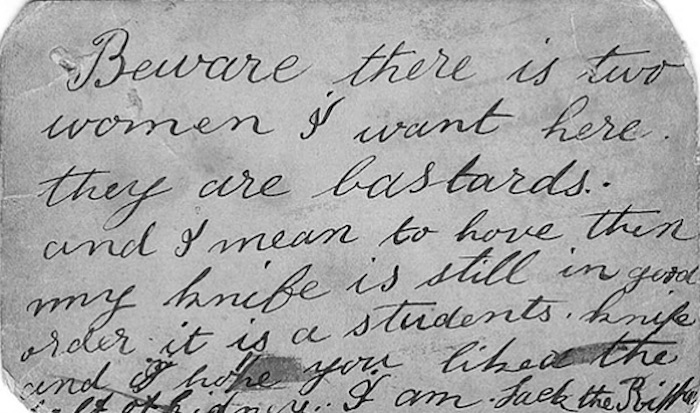 Beware there is two
women I want here.
they are bastards.
and I mean to have them
my knife is still in good
order it is a students. knife
and I hope you liked the
half of kidney.. I am Jack the Ripper